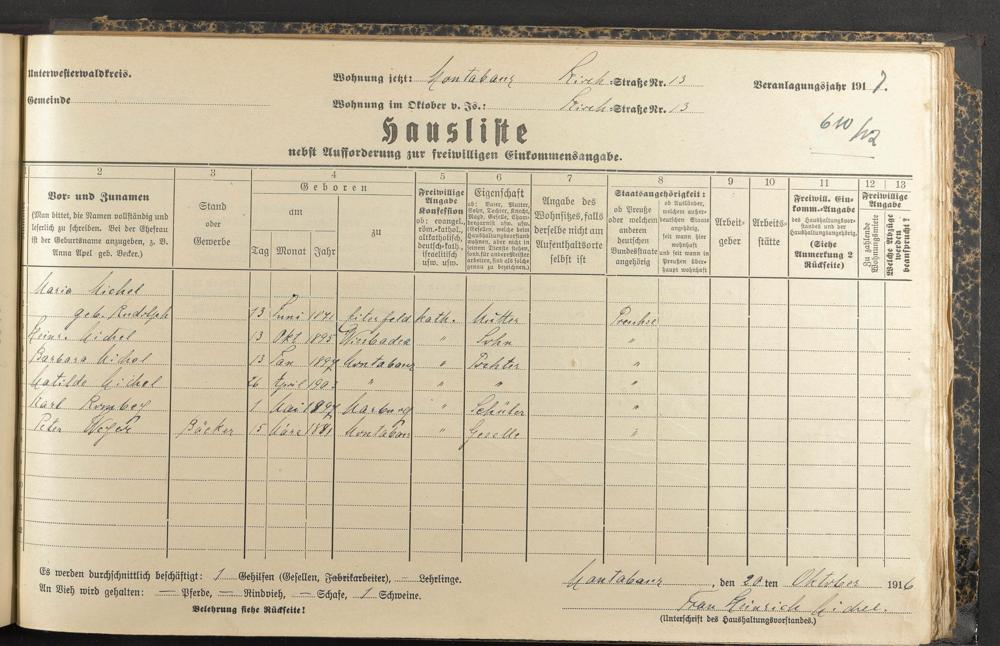 Unterwesterwaldkreis.
Gemeinde
Wohnung jetzt: Montabaur Kirch Straße Nr. 13
Wohnung im Oktober v. Js.: Kirch Straße Nr. 13
Veranlagungsjahr 1917.
Hausliste
nebst Aufforderung zur freiwilligen Einkommensangabe.
2 3 4 5 6 7 8 9 10 11 12 13
Vor- und Zunamen
(Man bittet, die Namen vollständig und
leserlich zu schreiben. Bei der Ehefrau
ist der Geburtsname anzugeben, z. B.
Anna Apel geb. Becker.)
Stand
oder
Gewerbe
Geboren
am
Tag Monat Jahr
zu
Freiwillige
Angabe
Konfession
ob: evangel.,
röm.-kathol.,
altkatholisch,
deutsch-kath.,
israelitisch
usw. usw.
Eigenschaft
ob: Vater, Mutter,
Sohn, Tochter, Knecht,
Magd, Geselle,
Angabe des
Wohnsitzes, falls
derselbe nicht am
Aufenthaltsorte
selbst ist
Staatsangehörigkeit:
ob Preuße
oder welchem
anderen
deutschen
Bundesstaate
angehörig
ob Ausländer,
welchem außer-
deutschen Staate
angehörig,
seit wann hier
wohnhaft
und seit wann in
Preußen über-
haupt wohnhaft
Arbeit-
geber
Arbeits-
stätte
Freiwill. Ein-
komm.-Angabe
des Haushaltungsvor-
standes und der
Haushaltungsangehörig.
(Siehe
Anmerkung 2
Rückseite)
Freiwillige
Angabe
Zu zahlende
Wohnungsmiete
Welche Abzüge
werden
beansprucht?
Maria Michel
geb. Rudolph 13 Juni 1871 kath. Mutter
Heinr. Michel 13 Okt 1895 Wiesbaden " Sohn "
Barbara Michel 13 Jan 1897 Montabaur " Tochter "
Matilde Michel 26 April 1903 " " " "
Karl 1 Mai 1897 Marburg " Schüler "
Peter Bäcker 15 März 1881 Montabaur " Geselle "
Es werden durchschnittlich beschäftigt: 1 Gehilfen (Gesellen, Fabrikarbeiter), — Lehrlinge.
An Vieh wird gehalten: — Pferde, — Rindvieh, — Schafe, 1 Schweine.
Belehrung siehe Rückseite!
Montabaur, den 20ten Oktober 1916
Frau Heinrich Michel.
(Unterschrift des Haushaltungsvorstandes.)